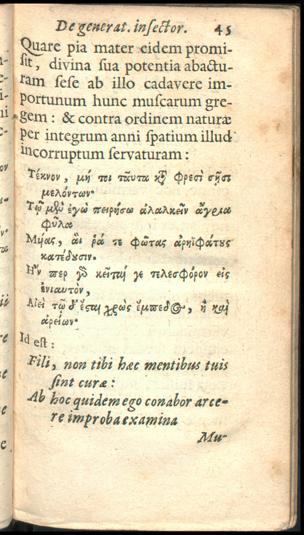 De generat. insector. 45
Quare pia mater eidem promi-
sit, divina sua potentia abactu-
ram sese ab illo cadavere im-
portunum hunc muscarum gre-
gem: & contra ordinem naturæ
per integrum anni spatium illud
incorruptum servaturam:
Τέκνον, μή τοι ταῦτα μξ͂ φρεσὶ σῇσι
μελόντων·
Τῷ μὲν ἐγὼ πειρήσω ἀλαλκεῖν ἄγρια
φῦλα
Μυίας, αἵ ῥά τε φῶτας ἀρηϊφάτους
κατέδουσιν·
Ἤν περ γὸ κεῖται γε τελεσφόρον εἰς
ἐνιαυτὸν,
Αἰεὶ τῷδ' ἔσται χρὼς ἔμπεδος, ἢ καὶ
ἀρείων·
Id est:
Fili, non tibi hæc mentibus tuis
sint curæ:
Ab hoc quidem ego conabor arce-
re improba examina
Mu-